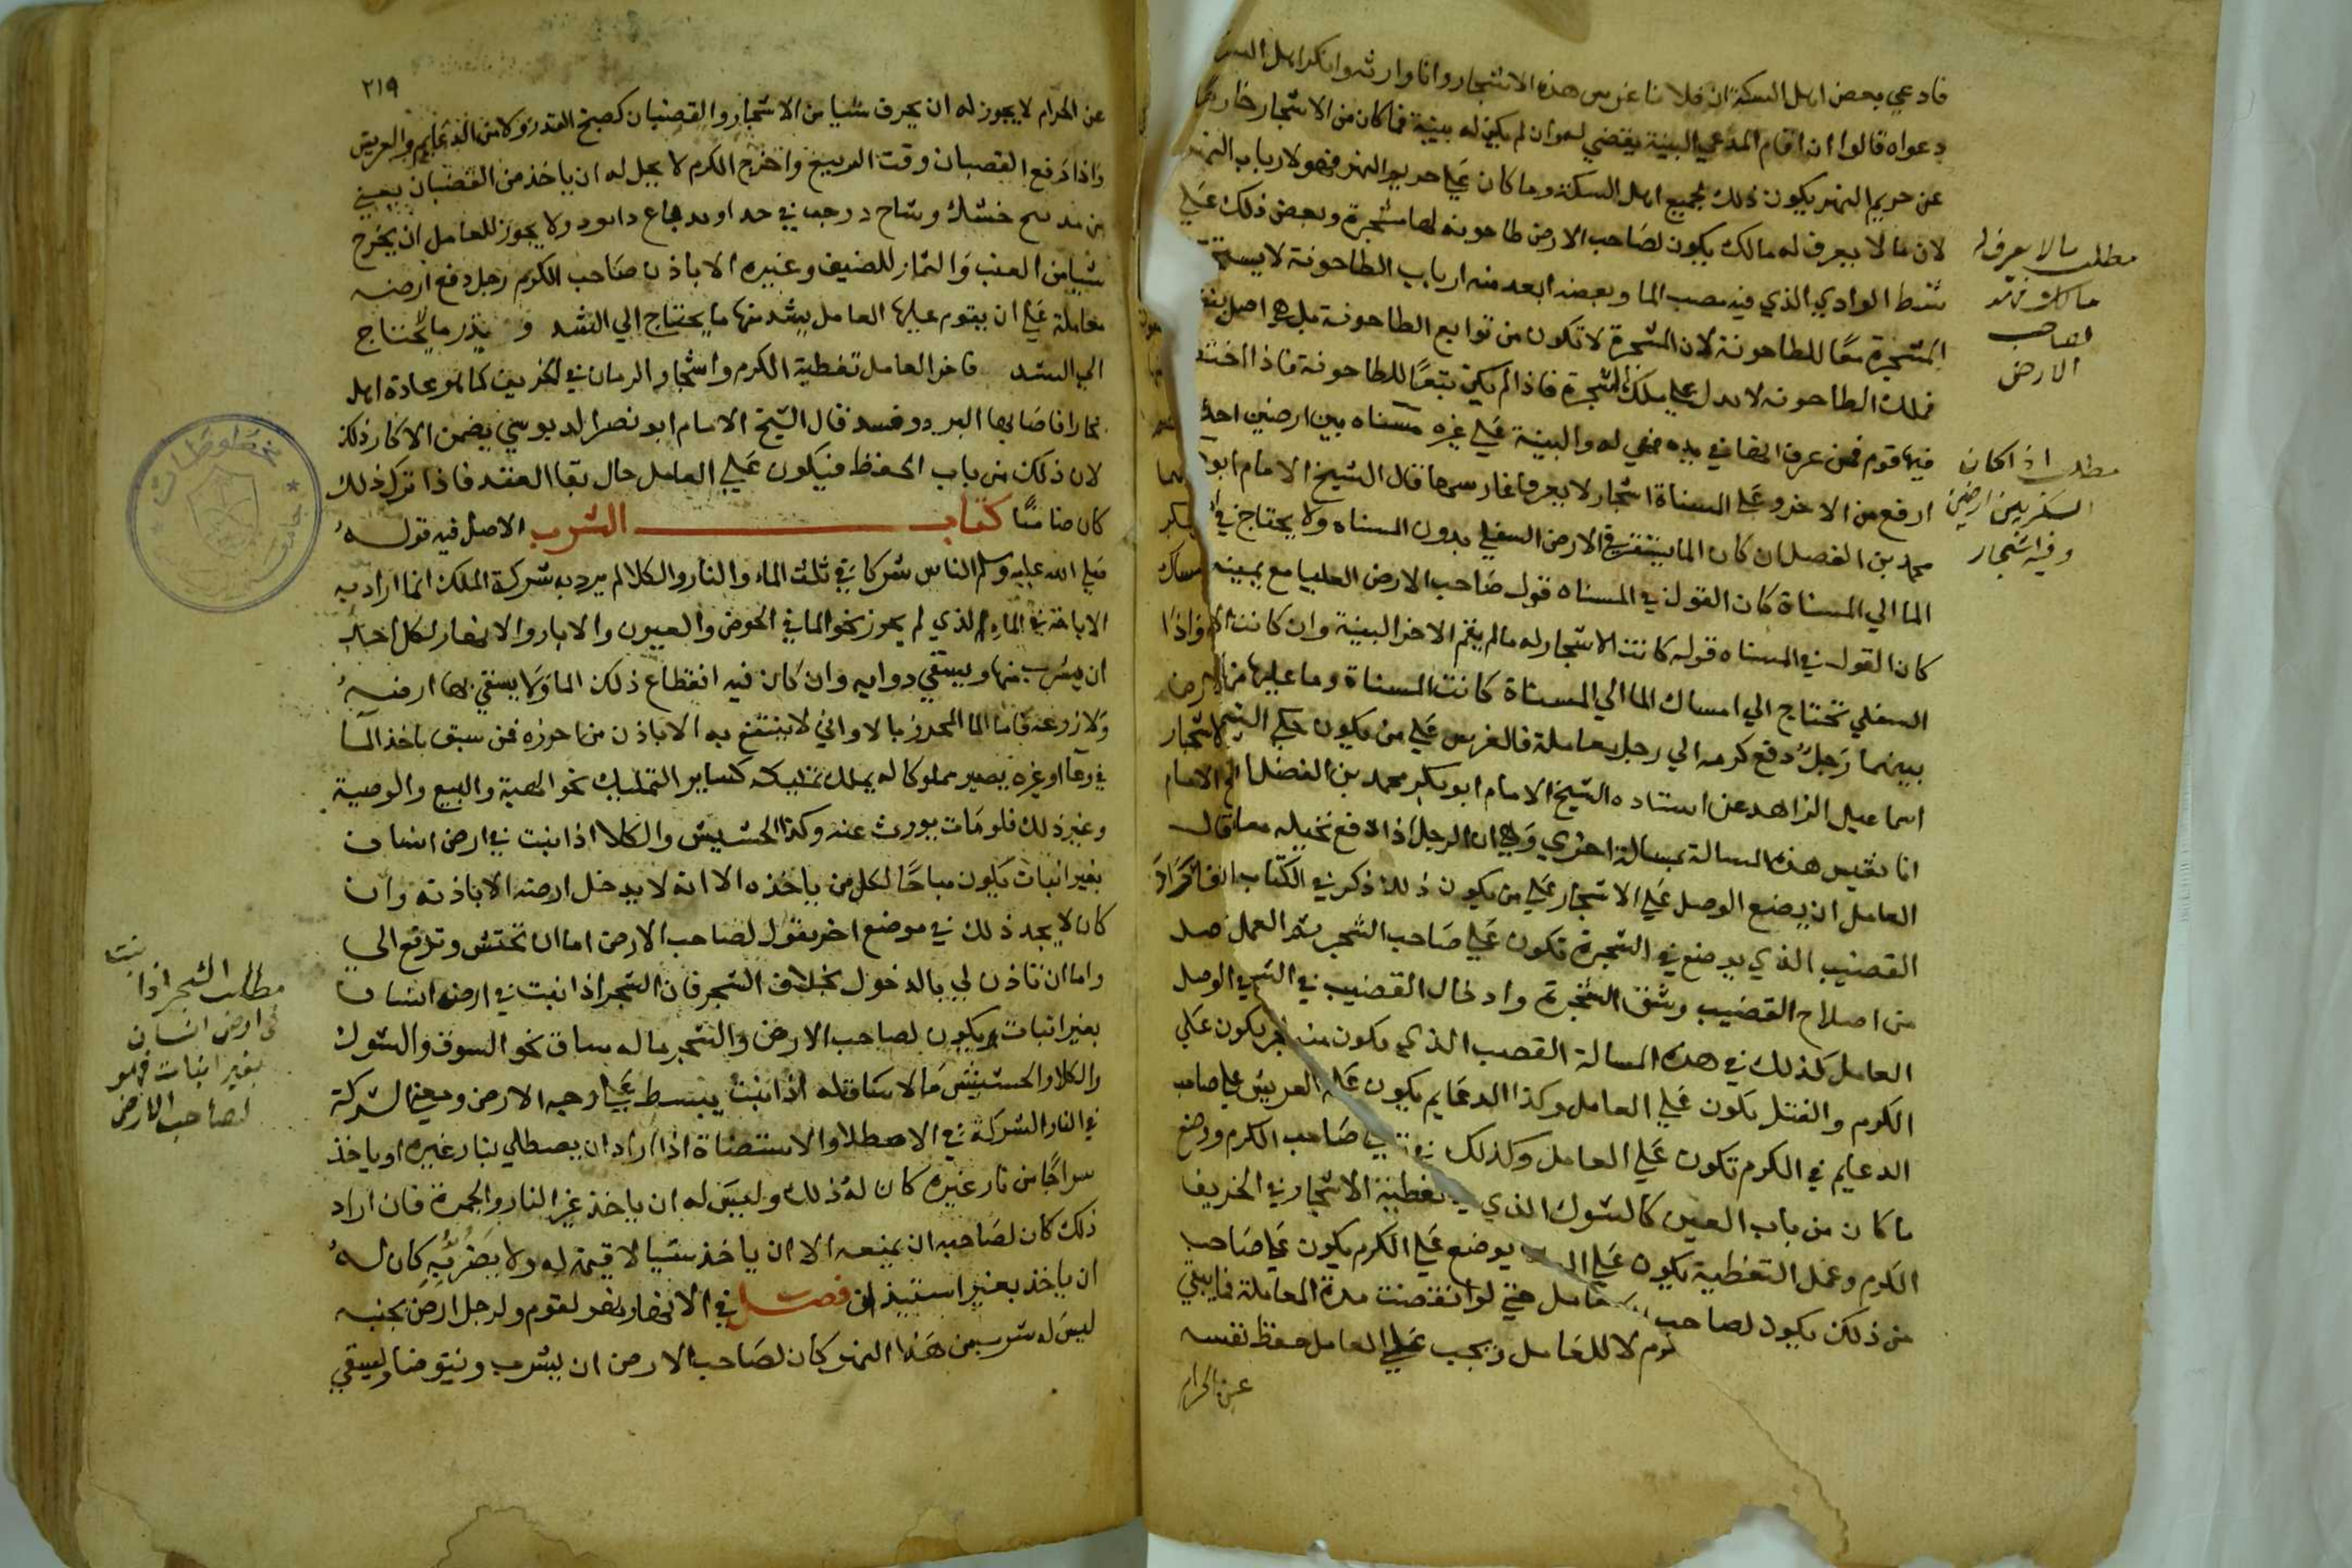 فادعي بعض اهل السكة ان فلانا غرس هذه الاشجار وانا وارثه وانكر اهل السكة
دعواه قالوا ان اقام المدعي البينة يقضي له وان لم يكن له بينة فما كان من الاشجار خارجا
عن حريم النهر يكون ذلك لجميع اهل السكة وما كان علي حريم النهر فهو لارباب النهر
لان مالا يعرف له مالك يكون لصاحب الارض طاحونة لها مشجرة وبعض ذلك علي
شط الوادي الذي فيه مصب الما وبعضه ابعد منه ارباب الطاحونة لا
المشجرة معا للطاحونة لان المشجرة لا تكون من توابع الطاحونة بل هي اصل
فملك الطاحونه لا يدل علي ملك الشجرة فاذا لم يكن تبعا للطاحونة فاذا
فيها قوم فمن عرف انها في يده فهي له والبينة علي غيره مسناه بين ارضين احد
ارفع من الاخر وعلي المسناة اشجار لا يعرف غارسها قال الشيخ الامام ابو
محمد بن الفضل ان كان الما يستقر في الارض السفلي بدون المسناه ولا يحتاج في
الما الي المسناة كان القول في المسناه قول صاحب الارض العليا مع يمينه
كان القول في المسناه قوله كانت الاشجار له مالم يقم الاخر البينة وان كانت
السفلي تحتاج الي امساك الما الي المسناة كانت المسناة وما عليها من
بينهما رجل دفع كرمه الي رجل معاملة فالغرس علي من يكون حكي الشيخ
اسماعيل الزاهد عن استاده الشيخ الامام ابو بكر محمد بن الفضل
انا نقيس هذه المسالة بمسالة اخري وهي ان الرجل اذا دفع نخيله معا
العامل ان يضع الوصل علي الاشجار علي من يكون ذلك ذكر في الكتاب ان
القضيب الذي يوضع في الشجرة تكون علي صاحب الشجر ثم العمل
من اصلاح القضيب وشق الشجرة وادخال القضيب في الوصل
العامل كذلك في هذه المسالة القصب الذي يكون منه يكون علي
الكرم والفتل يكون علي العامل وكذا الدعايم يكون العريش علي صاحب
الدعايم في الكرم تكون علي العامل وكذلك صاحب الكرم ووضع
ما كان من باب العين كالشوك الذي تغطية الاشجار في الخريف
الكرم وعمل التغطية يكون علي يوضع علي الكرم يكون علي صاحب
من ذلك يكون لصاحب حتي لو انقضت مدة المعاملة فما بقي
لا للعامل ويجب علي العامل حفظ نفسه
عن الحرام
مطلب مالا يعرف له
مالك
لصاحب
الارض
مطلب اذا كان
بين ارضين
وفيه اشجار
٢١٩
عن الحرام لا يجوز له ان يحرق شيا من الاشجار والقضبان كصبخ القدر ولا من الدعايم والعريش
واذا رفع القضبان وقت الربيع واخرج الكرم لا يحل له ان ياخذ من القضبان يعني
ولا يجوز للعامل ان يخرج
شيا من العنب والثمار للضيف وغيره الا باذن صاحب الكرم رجل دفع ارضه
معاملة علي ان يقوم عليها العامل يشد منها ما يحتاج الي الشد و يذر ما لا يحتاج
الي الشد فاخر العامل تغطية الكرم واشجار الرمان في الخريف كما هو عادة اهل
بخارا فاصابها البرد وفسد قال الشيخ الامام ابو نصر الدبوسي يضمن الاكار ذلك
لان ذلك من باب الحفظ فيكون علي العامل حال بقا العقد فاذا ترك ذلك
كان ضامنا كتاب الشرب الاصل فيه قوله
صلي الله عليه وسلم الناس شركا في ثلث الماء والنار والكلا لم يرد به شركة الملك انما اراد به
الاباحة في الماء الذي لم يحرز نحو الما في الحوض والعيون والابار والانهار لكل احد
ان يشرب منها ويسقي دوابه وان كان فيه انقطاع ذلك الما ولا يسقي بها ارضه
ولا زرعه فاما الما المحرز بالاواني لا ينتفع به الا باذن من احرزه فمن سبق باخذ الما
في وعا او غيره يصير مملوكا له يملك تمليكه كساير التمليك نحو الهبة والبيع والوصية
وغير ذلك فلو مات يورث عنه وكذا الحشيش والكلا اذا نبت في ارض انسان
بغير انبات يكون مباحا لكل من ياخذه الا انه لا يدخل ارضه الا باذنه وان
كان لا يجد ذلك في موضع اخر يقول لصاحب الارض اما ان تحتش وتدفع الي
واما ان تاذن لي بالدخول بخلاف الشجر فان الشجر اذا نبت في ارض انسان
بغير انبات يكون لصاحب الارض والشجر ماله ساق نحو السوق والشوك
والكلا والحشيش مالا ساق له اذا نبت يبسط علي وجه الارض ومعني الشركة
في النار الشركة في الاصطلا والاستضاة اذا اراد ان يصطلي بنار غيره او ياخذ
سراجا من نار غيره كان له ذلك وليس له ان ياخذ غير النار والجمرة فان اراد
ذلك كان لصاحبه ان يمنعه الا ان ياخذ شيا لا قيمة له ولا يضر به كان له
ان ياخذ بغير استيذان فصل في الانهار نهر لقوم ولرجل ارض بجنبه
ليس له شرب من هذا النهر كان لصاحب الارض ان يشرب ويتوضا ويسقي
مطلب الشجر اذا نبت
في ارض انسان
بغير انبات فهو
لصاحب الارض
مخطوطات